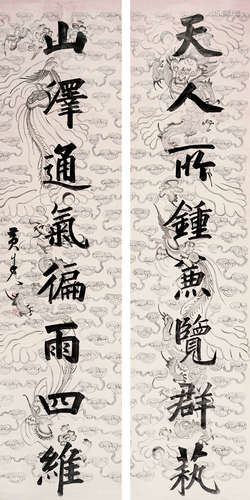 天人所鍾兼覽群萟
山澤通氣徧雨四維